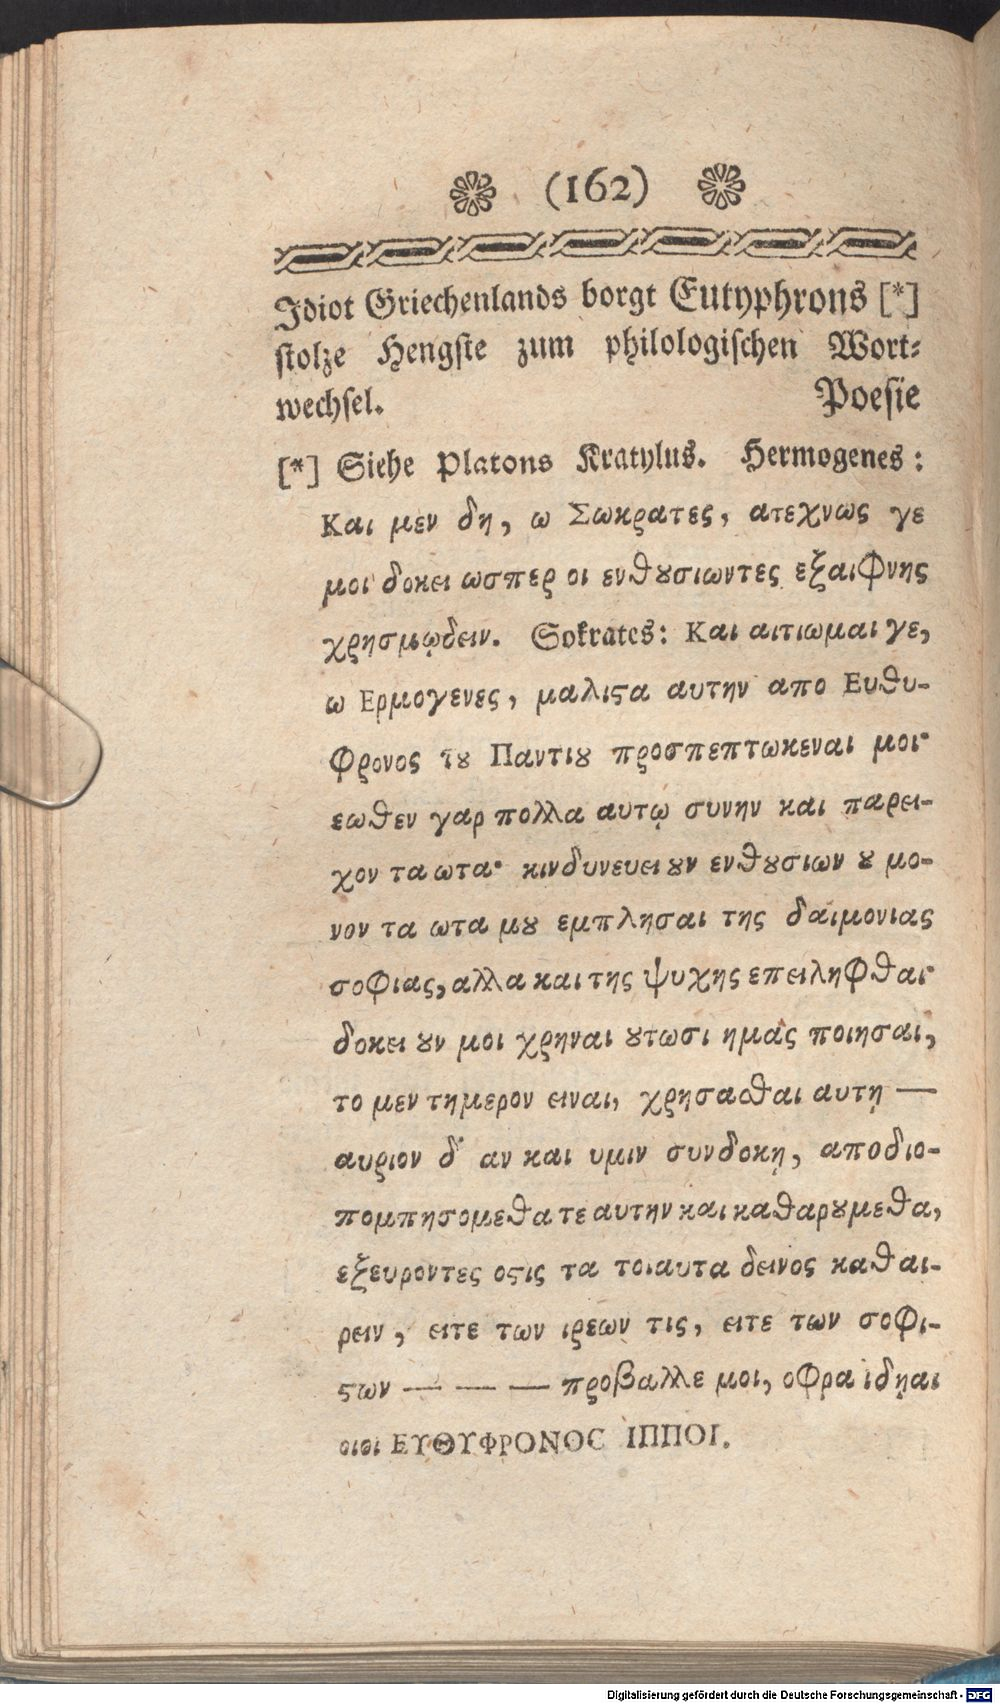 (162)
Idiot Griechenlands borgt Eutyphrons [*]
ſtolze Hengſte zum philologiſchen Wort-
wechſel. Poeſie
[*] Siehe Platons Kratylus. Hermogenes:
Και μεν δη, ω Σωκρατες, ατεχνως γε
μοι δοκει ωσπερ οι ενθȣσιωντες εξαιφνης
χρησμῳδειν. Sokrates: Και αιτιωμαι γε,
ω Ερμογενες, μαλιϛα αυτην απο Ευθυ-
φρονος τȣ Παντιȣ προσπεπτωκεναι μοι·
εωθεν γαρ πολλα αυτῳ συνην και παρει-
χον τα ωτα· κινδυνευει ȣν ενθȣσιων ȣ μο-
νον τα ωτα μȣ εμπλησαι της δαιμονιας
σοφιας, αλλα και της ψυχης επειληφθαι·
δοκει ȣν μοι χρηναι ȣτωσι ημας ποιησαι,
το μεν τημερον ειναι, χρησασθαι αυτῃ —
αυριον δ' αν και υμιν συνδοκῃ, αποδιο-
πομπησομεθα τε αυτην και καθαρȣμεθα,
εξευροντες οϛις τα τοιαυτα δεινος καθαι-
ρειν, ειτε των ιρεων τις, ειτε των σοφι-
ϛων — — — προβαλλε μοι, οφρα ιδηαι
οιοι ΕΥΘΥΦΡΟΝΟC ΙΠΠΟΙ.
Digitalisierung gefördert durch die Deutsche Forschungsgemeinschaft - DFG